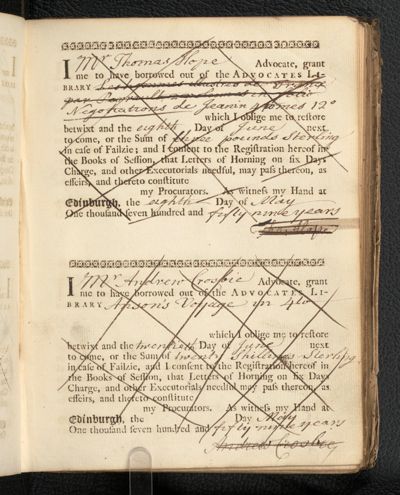 I Mr Thomas Hope Advocate, grant
me to have borrowed out of the ADVOCATES LI-
BRARY
Negotiations de Jeanin 4 tomes 12o
which I oblige me to restore
betwixt and the eighth Day of June next
to come, or the Sum of pounds Sterling
in case of Failzie; and I consent to the Registration hereof in
the Books of Session, that Letters of Horning on six Days
Charge, and other Executorials needful, may pass thereon, as
effeirs, and thereto constitute
my Procurators. As witness my Hand at
Edinburgh, the eighth Day of May
One thousand seven hundred and fifty nine years
I Mr Andrew Crosbie Advocate, grant
me to have borrowed out of the ADVOCATES LI-
BRARY Anson's Voyage in 4to
which I oblige me to restore
betwixt and the twentieth Day of June next
to come, or the Sum of twenty Shillings Sterling
in case of Failzie, and I consent to the Registration hereof in
the Books of Session, that Letters of Horning on six Days
Charge, and other Executorials needful may pass thereon, as
effeirs, and thereto constitute
my Procurators. As witness my Hand at
Edinburgh, the Day May
One thousand seven hundred and fifty nine years
Andrew Crosbie